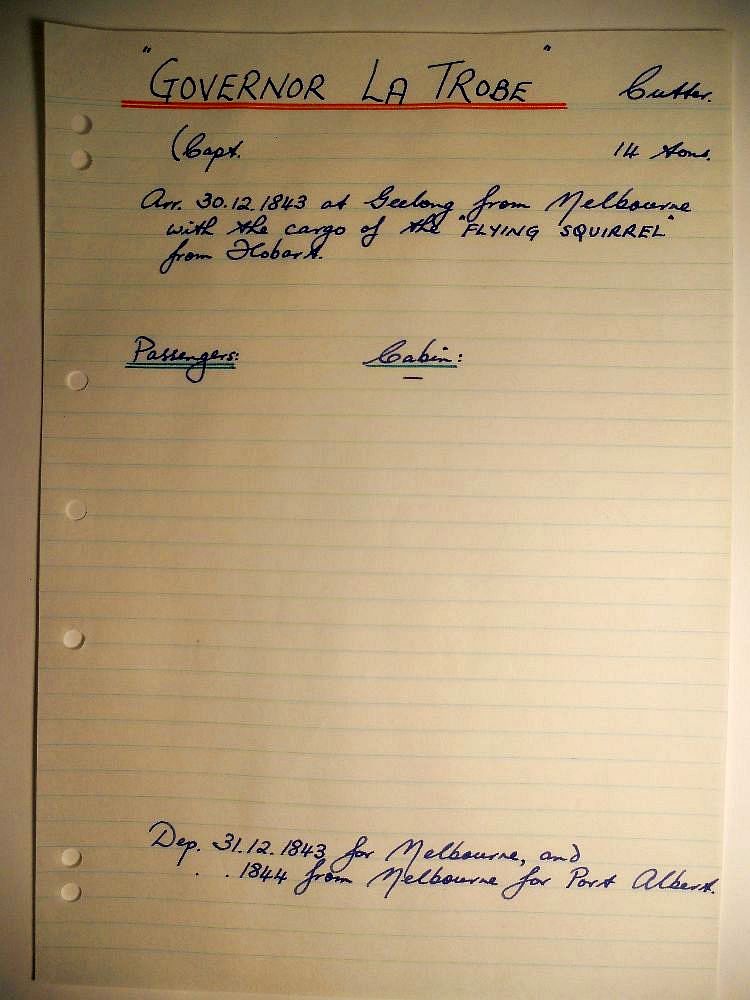 "GOVERNOR LA TROBE" Cutter.
(Capt. 14 tons.
Arr. 30.12.1843 at Geelong from Melbourne
with the cargo of the "FLYING SQUIRREL"
from Hobart.
Passengers: Cabin:
—
Dep. 31.12.1843 for Melbourne, and
. . 1844 from Melbourne for Port Albert.